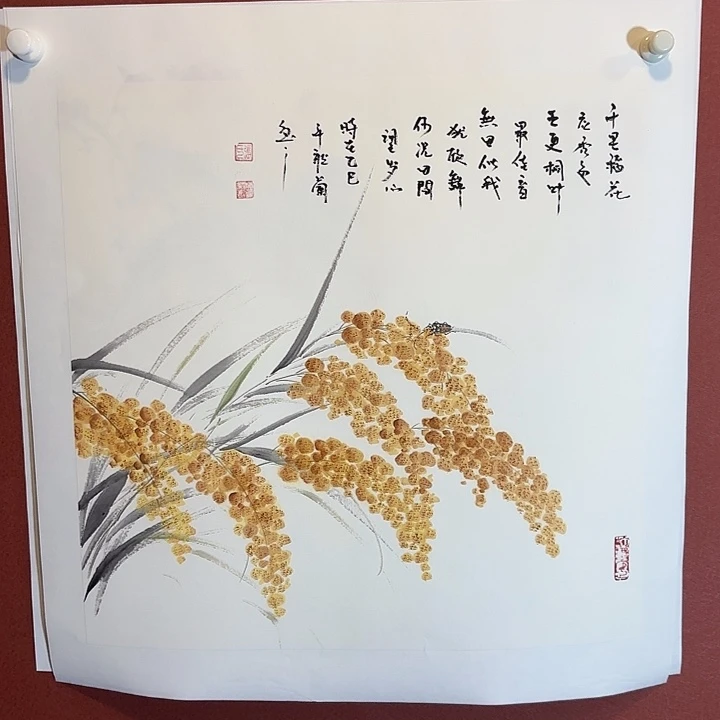 千里稻花
应秀色
五更桐叶
最佳音
無田似我
犹欣舞
何况田間
望岁心
時在乙巳
年